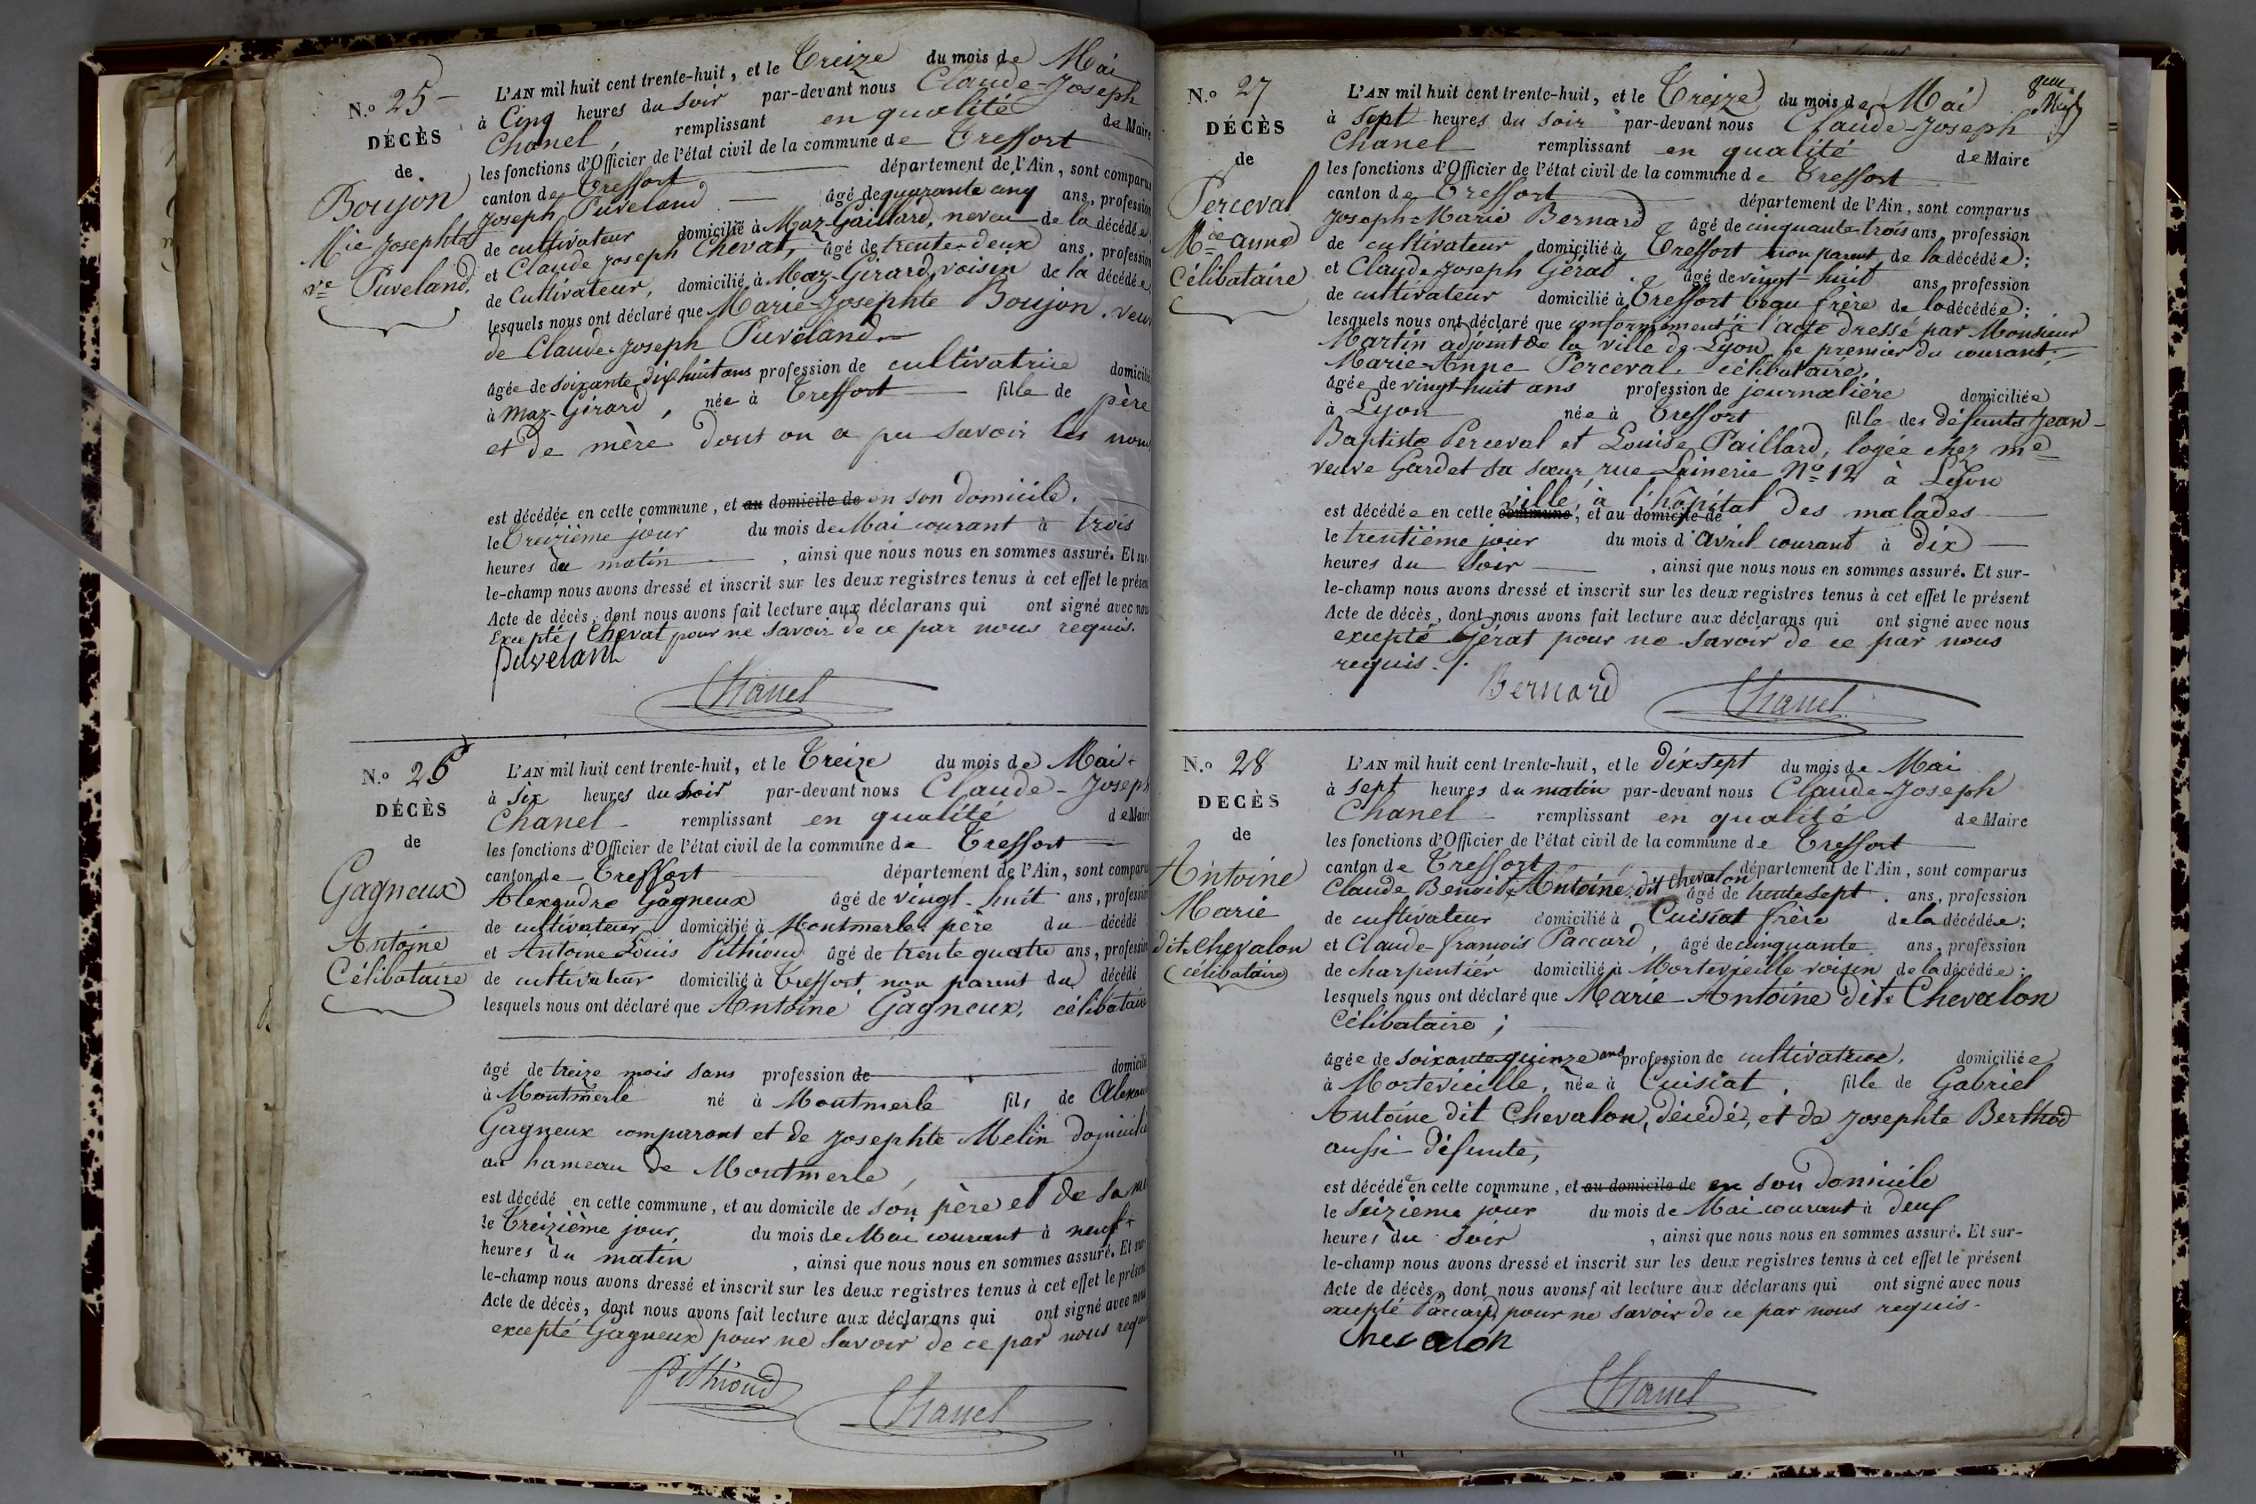 N.º 25
DÉCÈS
de
Boujon
Mie Josephte
vve Puveland.
L'AN mil huit cent trente-huit, et le Treize du mois de Mai
à Cinq heures du soir par-devant nous Claude-Joseph
Chanel, remplissant en qualité de Maire
les fonctions d'Officier de l'état civil de la commune de Treffort
canton de Treffort département de l'Ain, sont comparus
Joseph Puveland âgé de quarante cinq ans, profession
de cultivateur domicilié à Maz-Gaillard, neveu de la décédée,
et Claude Joseph Chevat, âgé de trente-deux ans, profession
de Cultivateur, domicilié à Maz-Girard, voisin de la décédée
lesquels nous ont déclaré que Marie-Josephte Boujon, veuv
de Claude-Joseph Puveland
âgée de soixante dix huit ans profession de cultivatrice domicilié
à Maz-Girard, née à Treffort fille de père
et de mère dont on a pu savoir les noms
est décédée en cette commune, et au domicile de en son domicile.
le Treizième jour du mois de Mai courant à trois
heures du matin, ainsi que nous nous en sommes assuré. Et sur-
le-champ nous avons dressé et inscrit sur les deux registres tenus à cet effet le présent
Acte de décès, dont nous avons fait lecture aux déclarans qui ont signé avec nous
Excepté Chevat pour ne savoir de ce par nous requis.
Puveland
Chanel
N.º 26
DÉCÈS
de
Gagneux
Antoine
Célibataire
L'AN mil huit cent trente-huit, et le Treize du mois de Mai
à six heures du soir par-devant nous Claude-Joseph
Chanel remplissant en qualité de Maire
les fonctions d'Officier de l'état civil de la commune de Treffort
canton de Treffort département de l'Ain, sont comparus
Alexandre Gagneux âgé de vingt-huit ans, profession
de cultivateur domicilié à Montmerle père du décédé
et Antoine Louis Pithioud âgé de trente quatre ans, profession
de cultivateur domicilié à Treffort, non parent du décédé
lesquels nous ont déclaré que Antoine Gagneux, célibataire
âgé de treize mois sans profession de domicilié
à Montmerle né à Montmerle fils de Alexan
Gagneux comparant et de Josephte Melin domicilié
au hameau de Montmerle,
est décédé en cette commune, et au domicile de son père et de sa mè
le Treizième jour, du mois de Mai courant à neuf
heures du matin, ainsi que nous nous en sommes assuré. Et sur-
le-champ nous avons dressé et inscrit sur les deux registres tenus à cet effet le présent
Acte de décès, dont nous avons fait lecture aux déclarans qui ont signé avec nous
excepté Gagneux pour ne savoir de ce par nous requis
Pithioud
Chanel
N.º 27
DÉCÈS
de
Perceval
Mie anne
Célibataire
L'AN mil huit cent trente-huit, et le Treize du mois de Mai
à Sept heures du soir par-devant nous Claude-Joseph
Chanel remplissant en qualité de Maire
les fonctions d'Officier de l'état civil de la commune de Treffort
canton de Treffort département de l'Ain, sont comparus
Joseph-Marie Bernard âgé de cinquante-trois ans, profession
de cultivateur domicilié à Treffort non parent de la décédée;
et Claude-Joseph Gérat âgé de vingt-huit ans, profession
de cultivateur domicilié à Treffort beau frère de la décédée;
lesquels nous ont déclaré que conformément à l'acte dressé par Monsieur
Martin adjoint de la ville de Lyon, le premier du courant,
Marie-Anne Perceval, célibataire,
âgée de vingt-huit ans profession de journalière domiciliée
à Lyon née à Treffort fille des défunts Jean-
Baptiste Perceval et Louise Paillard, logée chez me
veuve Gardet sa sœur, rue Lainerie Nº 12 à Lyon
est décédée en cette commune ville, et au domicile de à l'hôpital des malades
le trentième jour du mois d'avril courant à dix
heures du soir, ainsi que nous nous en sommes assuré. Et sur-
le-champ nous avons dressé et inscrit sur les deux registres tenus à cet effet le présent
Acte de décès, dont nous avons fait lecture aux déclarans qui ont signé avec nous
excepté Gérat pour ne savoir de ce par nous
requis.
Bernard
Chanel
N.º 28
DÉCÈS
de
Antoine
Marie
dite chevalon
célibataire
L'AN mil huit cent trente-huit, et le dix sept du mois de Mai
à sept heures du matin par-devant nous Claude-Joseph
Chanel remplissant en qualité de Maire
les fonctions d'Officier de l'état civil de la commune de Treffort
canton de Treffort département de l'Ain, sont comparus
Claude Benoit Antoine dit chevalon âgé de trente sept ans, profession
de cultivateur domicilié à Cuisiat frère de la décédée;
et Claude-françois Paccard, âgé de cinquante ans, profession
de charpentier domicilié à Mortevieille voisin de la décédée;
lesquels nous ont déclaré que Marie Antoine dite Chevalon
Célibataire;
âgée de soixante quinze ans profession de cultivatrice, domiciliée
à Mortevieille, née à Cuisiat, fille de Gabriel
Antoine dit Chevalon, décédé, et de Josephte Berthod
aussi défunte,
est décédée en cette commune, et au domicile de en son domicile
le seizième jour du mois de Mai courant à deux
heures du soir, ainsi que nous nous en sommes assuré. Et sur-
le-champ nous avons dressé et inscrit sur les deux registres tenus à cet effet le présent
Acte de décès, dont nous avons fait lecture aux déclarans qui ont signé avec nous
excepté Paccard pour ne savoir de ce par nous requis.
Chevalon
Chanel